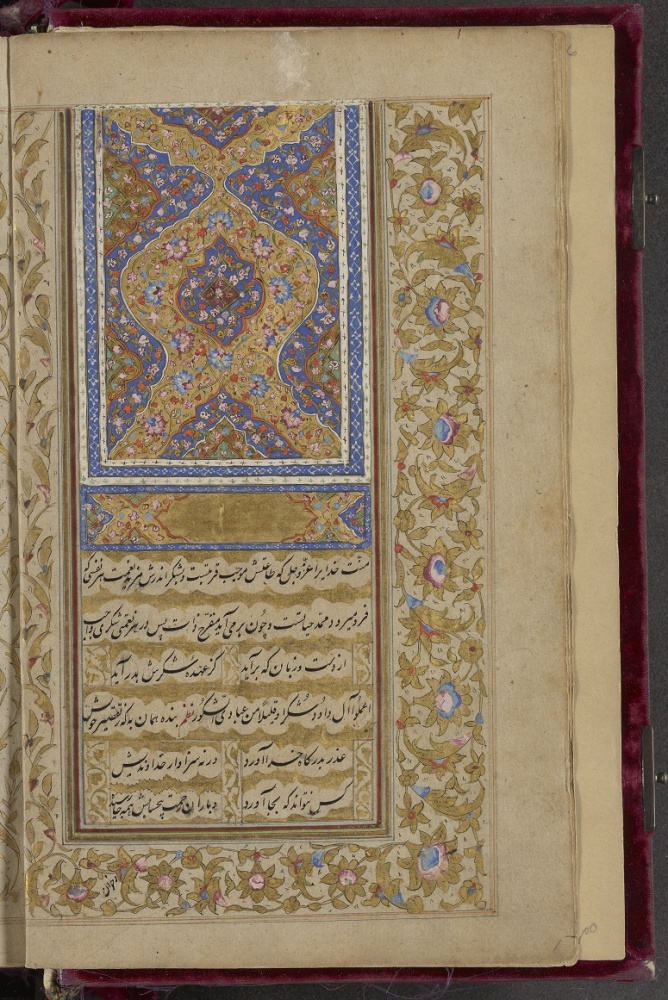 منت خدایرا عز و جل که طاعتش موجب قربتست و بشکر اندرش مزید نعمت هر نفسی که
فرو میرود ممد حیاتست و چون بر می آید مفرح ذات پس در هر نفسی شکری واجب
از دست و زبان که برآید کز عهده شکرش بدر آید
اعملوا آل داود شکرا و قلیلا من عبادی الشکور نظم بنده همان به که ز تقصیر خویش
عذر بدرگاه خدا آورد ورنه سزاوار خداوندیش
کس نتواند که بجا آورد و باران رحمت بیحسابش همه